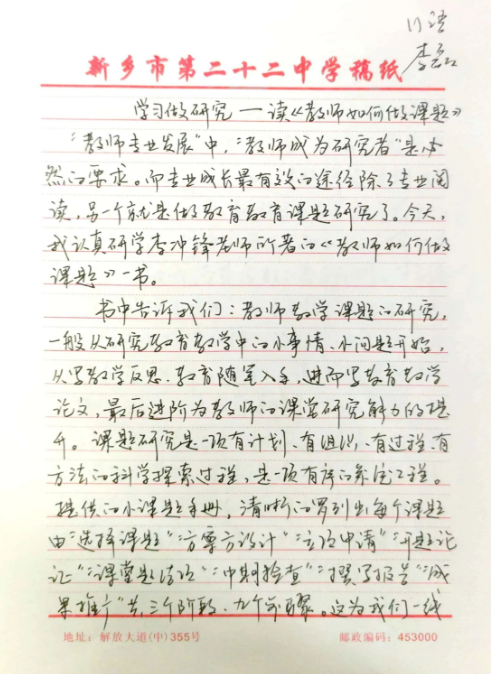 川语
李磊
新乡市第二十二中学稿纸
学习做研究 — 读《教师如何做课题》
"教师专业发展"中，"教师成为研究者"是必
然的要求。而专业成长最有效的途径除了专业阅
读，另一个就是做教育教育课题研究了。今天，
我认真研学李冲锋老师所著的《教师如何做
课题》一书。
书中告诉我们：教师教学课题的研究，
一般从研究教育教学中的小事情、小问题开始，
从写教学反思、教育随笔入手，进而写教育教学
论文，最后进阶为教师的课堂研究能力的提
升。课题研究是一项有计划、有组织、有过程、有
方法的科学探索过程，是一项有序的系统工程。
提供的小课题手册，清晰的罗列出每个课题
由"选择课题""方案设计""立项申请""开题论
证""课题""中期检查""撰写报告""成
果推广"共三个阶段、九个步骤。这为我们一线
地址：解放大道(中)355号
邮政编码：453000